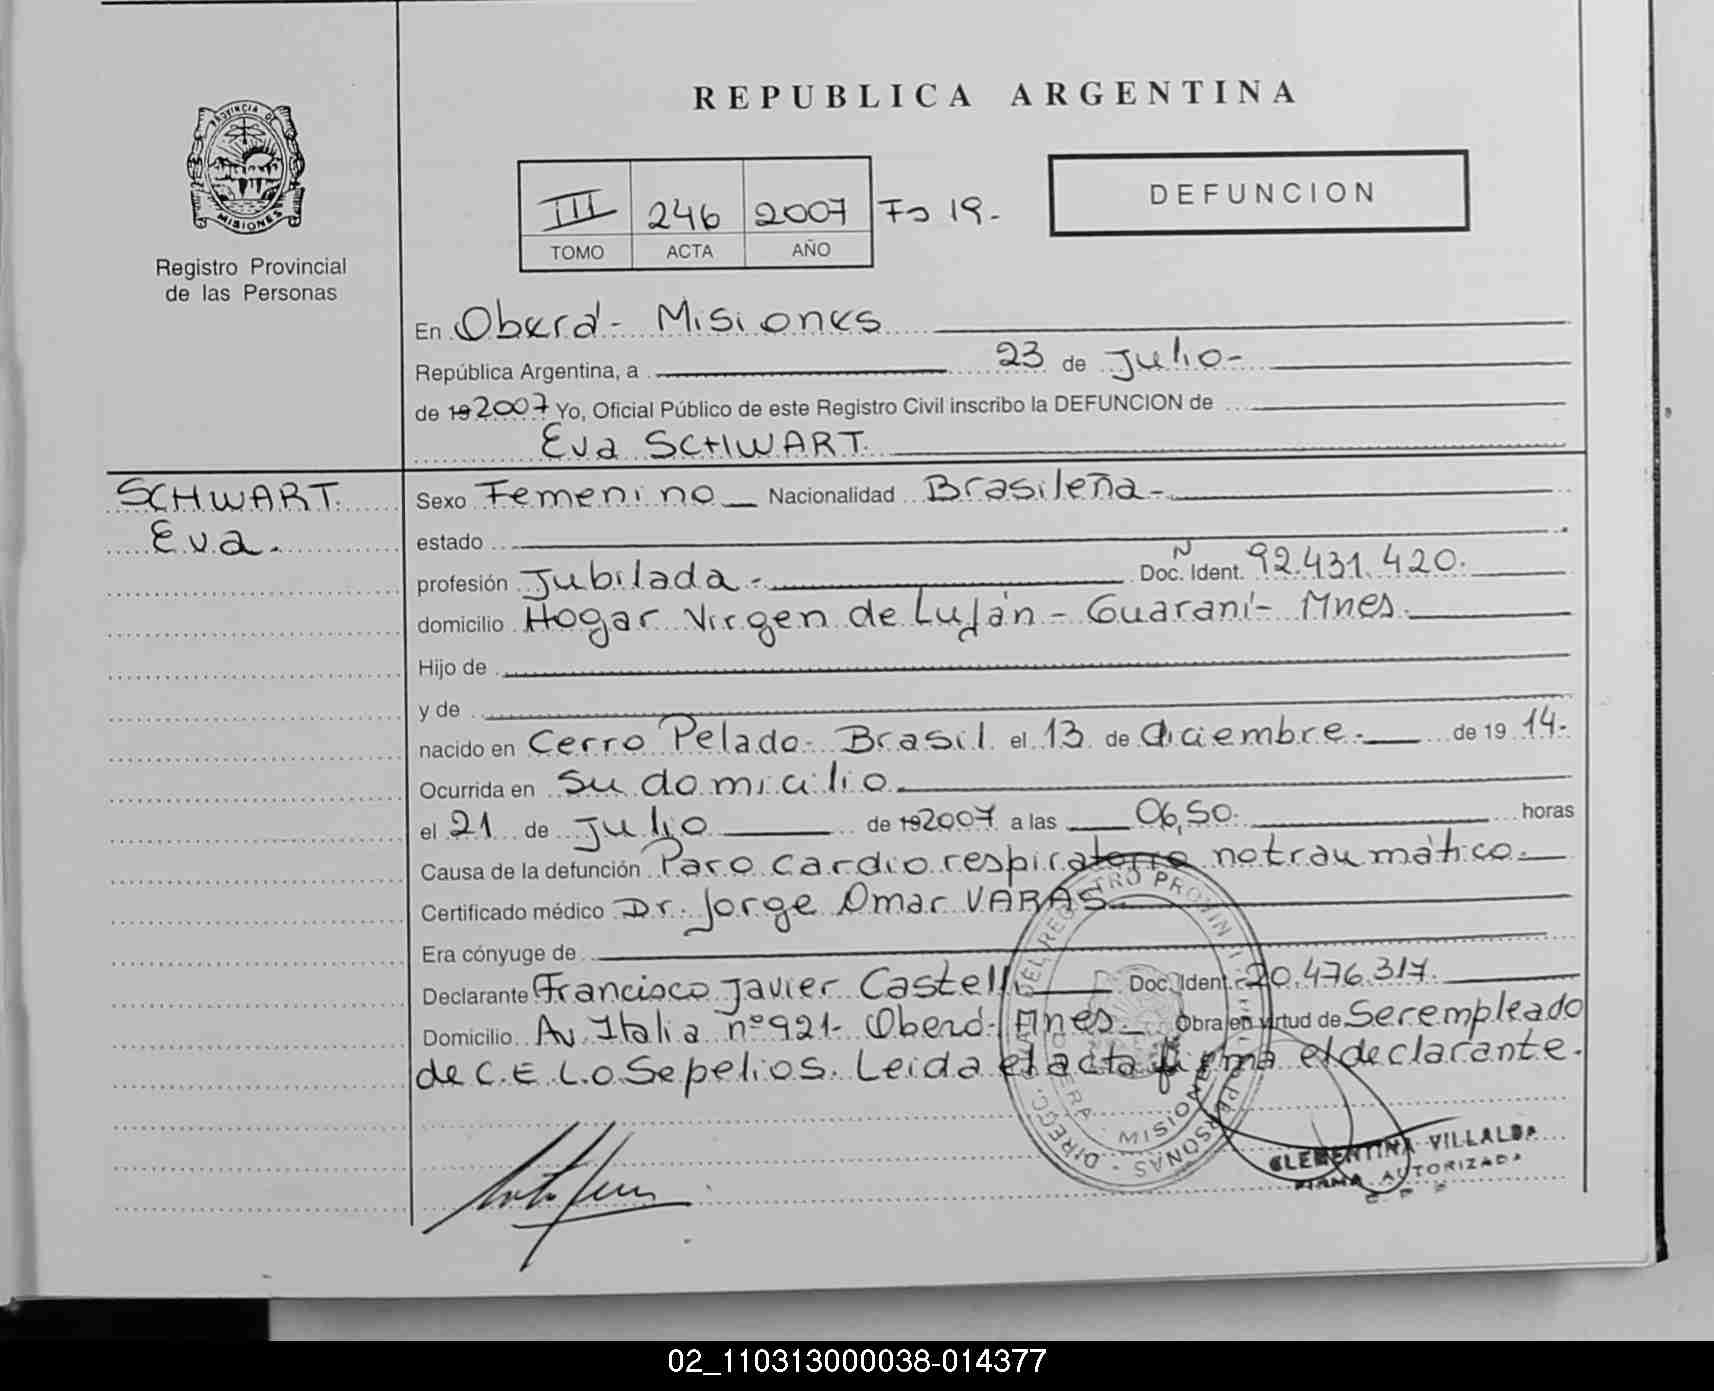 REPUBLICA ARGENTINA
PROVINCIA DE
MISIONES
Registro Provincial
de las Personas
III 246 2007 Fo 19.-
TOMO ACTA AÑO
DEFUNCION
En Oberá - Misiones
República Argentina, a 23 de Julio -
de 19 2007 Yo, Oficial Público de este Registro Civil inscribo la DEFUNCION de
Eva SCHWART.
SCHWART.
Eva.
Sexo Femenino Nacionalidad Brasileña -
estado
profesión Jubilada - Doc. Ident. Nº 92.431.420.
domicilio Hogar Virgen de Luján - Guaraní - Mnes.
Hijo de
y de
nacido en Cerro Pelado - Brasil el 13 de diciembre.- de 19 14.-
Ocurrida en su domicilio.
el 21 de Julio de 19 2007 a las 06,50. horas
Causa de la defunción Paro cardiorespiratorio no traumático.-
Certificado médico Dr. Jorge Omar VARAS.
Era cónyuge de
Declarante Francisco Javier Castelli Doc. Ident. 20.476.317.
Domicilio Av. Italia nº 921 - Oberá - Mnes Obra en virtud de Ser empleado
de C.E.L.O Sepelios. Leida el acta firma el declarante.
CLEMENTINA VILLALBA
FIRMA AUTORIZADA
02_110313000038-014377